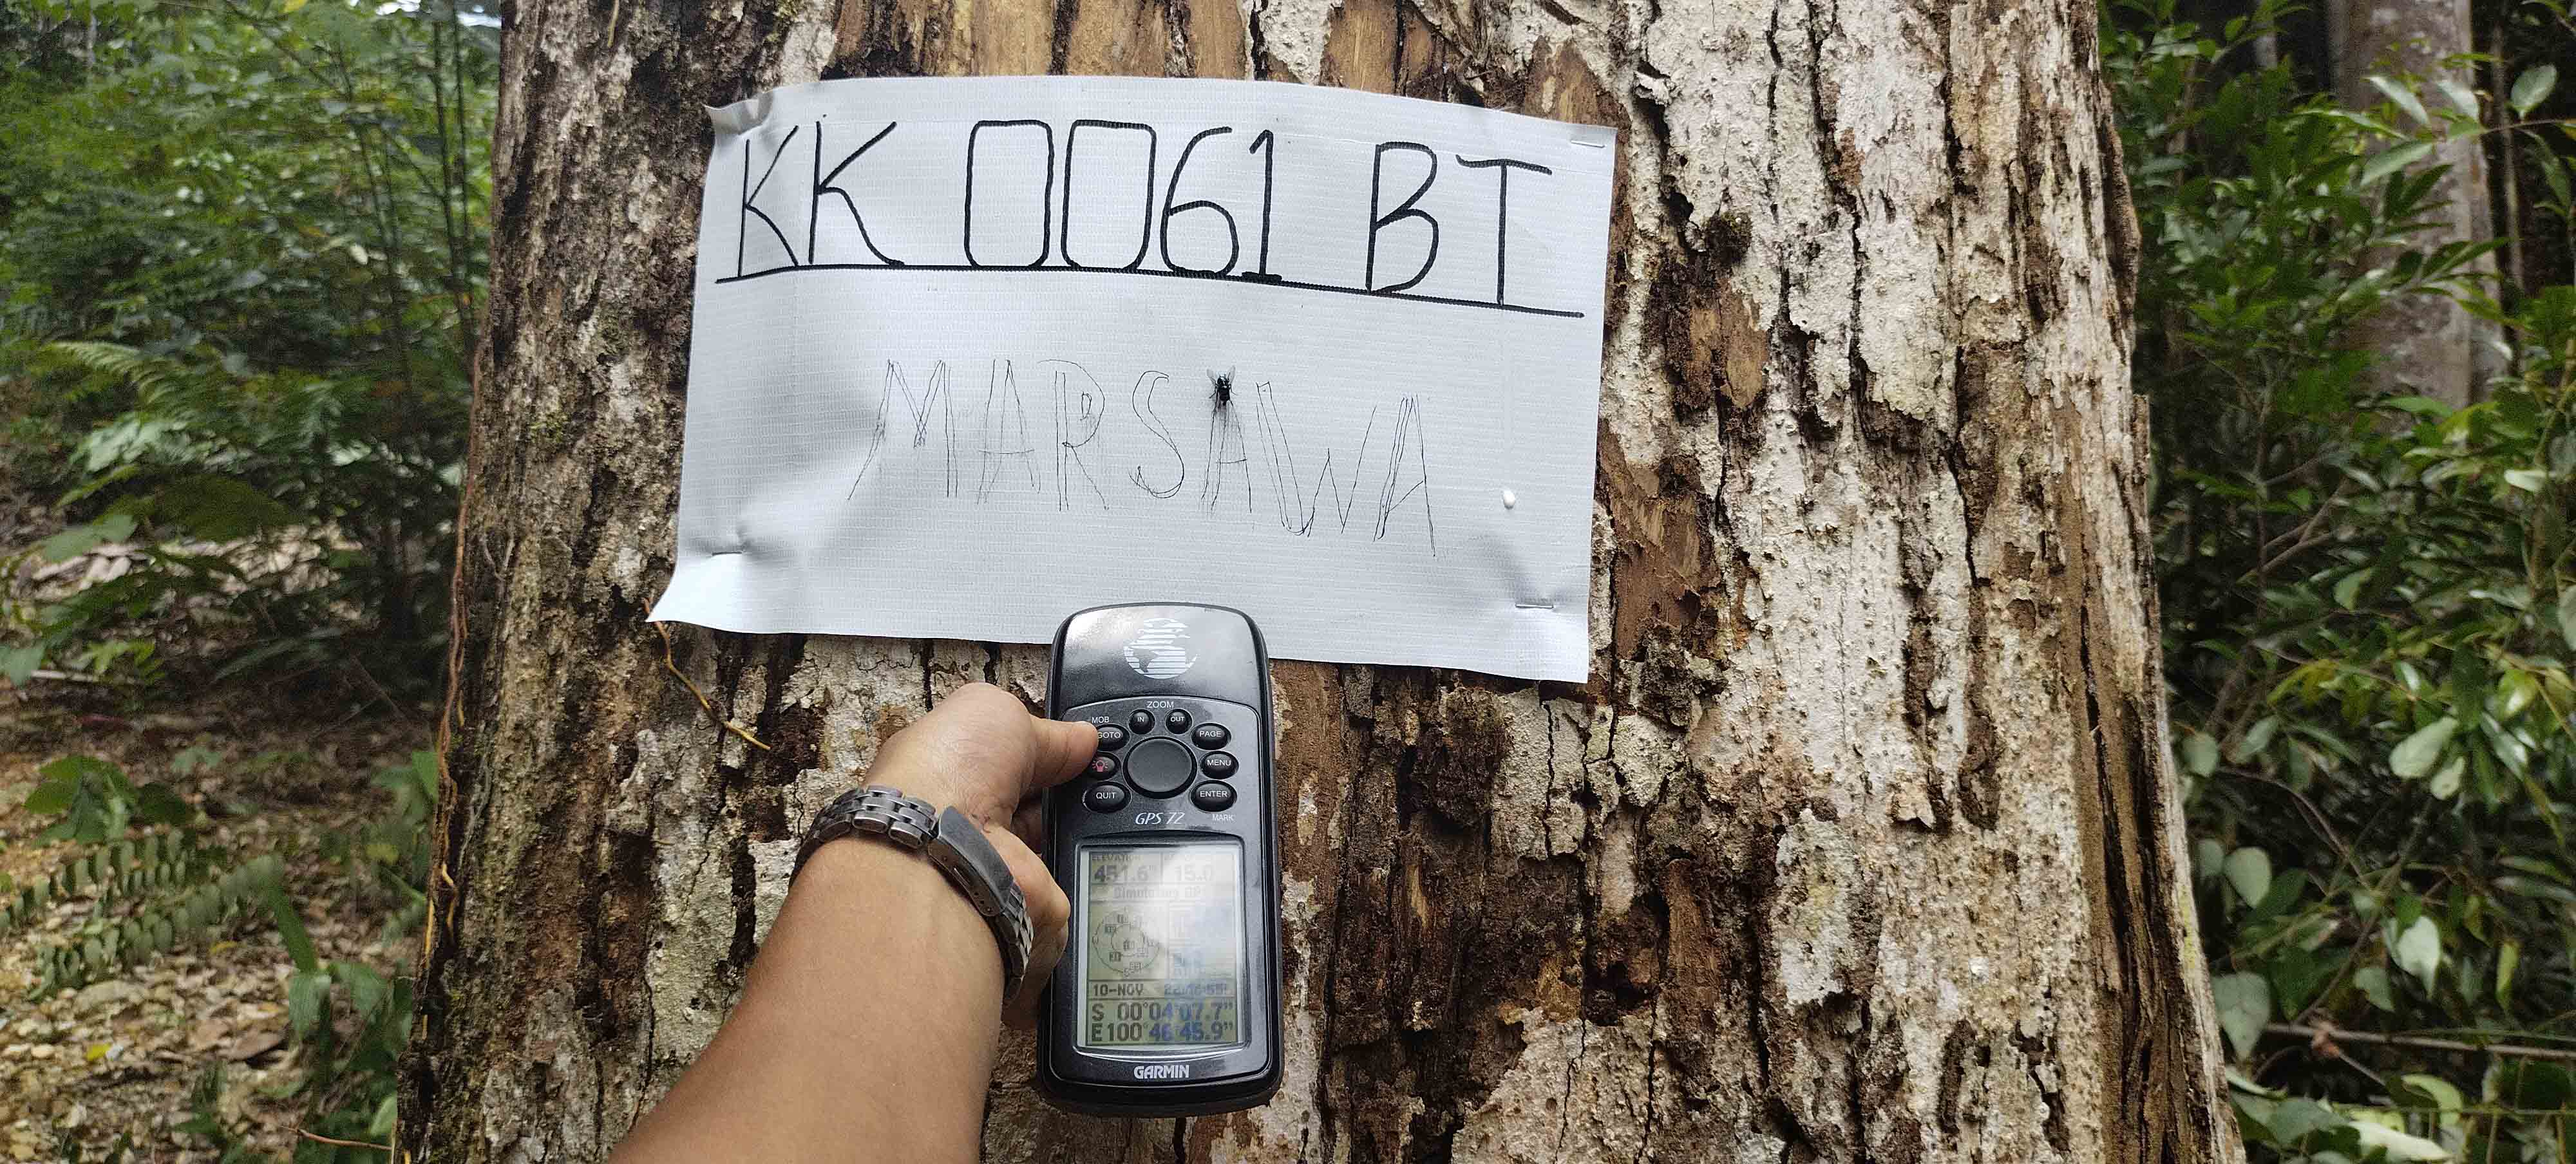 KK 0061 BT
MARSAWA
ZOOM
MOB
IN
OUT
GOTO
PAGE
MENU
QUIT
ENTER
GPS 72
MARK
451.6
15.0
10-NOV
S 00°04'07.7"
E100°46'45.9"
GARMIN